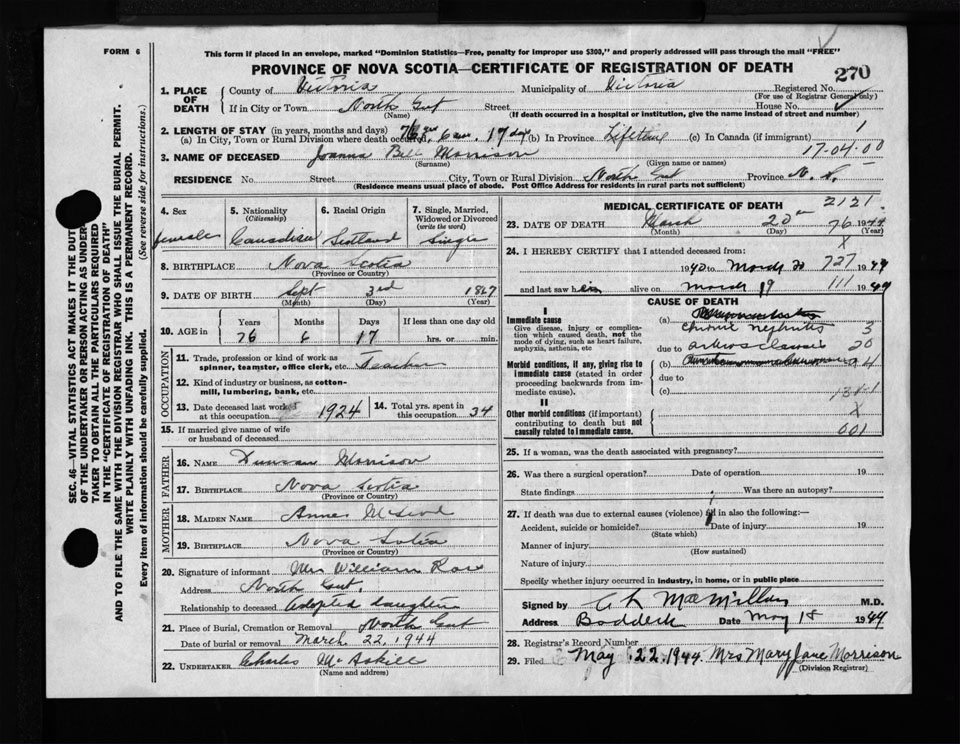 FORM 6
This form if placed in an envelope, marked "Dominion Statistics—Free, penalty for improper use $300," and properly addressed will pass through the mail "FREE"
PROVINCE OF NOVA SCOTIA—CERTIFICATE OF REGISTRATION OF DEATH
270
1. PLACE OF DEATH
County of Victoria Municipality of Victoria Registered No.
(For use of Registrar General only)
If in City or Town North Gut Street House No.
(Name) (If death occurred in a hospital or institution, give the name instead of street and number)
2. LENGTH OF STAY (in years, months and days)
(a) In City, Town or Rural Division where death occurred 76 yrs 6 mos. 17 days (b) In Province Lifetime (c) In Canada (if immigrant) 1
3. NAME OF DECEASED Joanna Bell Morrison 17-04-00
(Surname) (Given name or names)
RESIDENCE No. Street City, Town or Rural Division North Gut Province N. S.
(Residence means usual place of abode. Post Office Address for residents in rural parts not sufficient)
4. Sex
female
5. Nationality
(Citizenship)
Canadian
6. Racial Origin
Scotland
7. Single, Married, Widowed or Divorced
(write the word)
Single
8. BIRTHPLACE Nova Scotia
(Province or Country)
9. DATE OF BIRTH Sept 3rd 1867
(Month) (Day) (Year)
10. AGE in
Years Months Days If less than one day old
76 6 17 hrs. or min.
OCCUPATION
11. Trade, profession or kind of work as spinner, teamster, office clerk, etc. Teacher
12. Kind of industry or business, as cotton-mill, lumbering, bank, etc.
13. Date deceased last worked at this occupation 1924
14. Total yrs. spent in this occupation 34
15. If married give name of wife or husband of deceased
FATHER
16. NAME Duncan Morrison
17. BIRTHPLACE Nova Scotia
(Province or Country)
MOTHER
18. MAIDEN NAME Annie McLeod
19. BIRTHPLACE Nova Scotia
(Province or Country)
20. Signature of informant Mrs William Rose
Address North Gut
Relationship to deceased adopted daughter
21. Place of Burial, Cremation or Removal North Gut
Date of burial or removal March 22, 1944
22. UNDERTAKER Charles McAskill
(Name and address)
MEDICAL CERTIFICATE OF DEATH 2121
23. DATE OF DEATH March 20th 1944
(Month) (Day) (Year)
76
24. I HEREBY CERTIFY that I attended deceased from: X
1940 to March 20 1944 727
and last saw her alive on March 19 1944 111
CAUSE OF DEATH
I
Immediate cause
Give disease, injury or complication which caused death, not the mode of dying, such as heart failure, asphyxia, asthenia, etc
(a)
chronic nephritis 3
due to arteriosclerosis 20
Morbid conditions, if any, giving rise to immediate cause (stated in order proceeding backwards from immediate cause).
(b) 94
due to
(c) 131-1
II
Other morbid conditions (if important) contributing to death but not causally related to immediate cause.
X
601
25. If a woman, was the death associated with pregnancy?
26. Was there a surgical operation? Date of operation 19
State findings Was there an autopsy?
27. If death was due to external causes (violence) fill in also the following:—
Accident, suicide or homicide? Date of injury 19
(State which)
Manner of injury
(How sustained)
Nature of injury
Specify whether injury occurred in industry, in home, or in public place
Signed by C L MacMillan M.D.
Address Baddeck Date May 18 1944
28. Registrar's Record Number
29. Filed May 22, 1944. Mrs Mary Jane Morrison
(Division Registrar)
SEC. 46—VITAL STATISTICS ACT MAKES IT THE DUTY
OF THE UNDERTAKER OR PERSON ACTING AS UNDER-
TAKER TO OBTAIN ALL THE PARTICULARS REQUIRED
IN THE "CERTIFICATE OF REGISTRATION OF DEATH"
AND TO FILE THE SAME WITH THE DIVISION REGISTRAR WHO SHALL ISSUE THE BURIAL PERMIT.
WRITE PLAINLY WITH UNFADING INK. THIS IS A PERMANENT RECORD.
Every item of information should be carefully supplied. (See reverse side for instructions.)